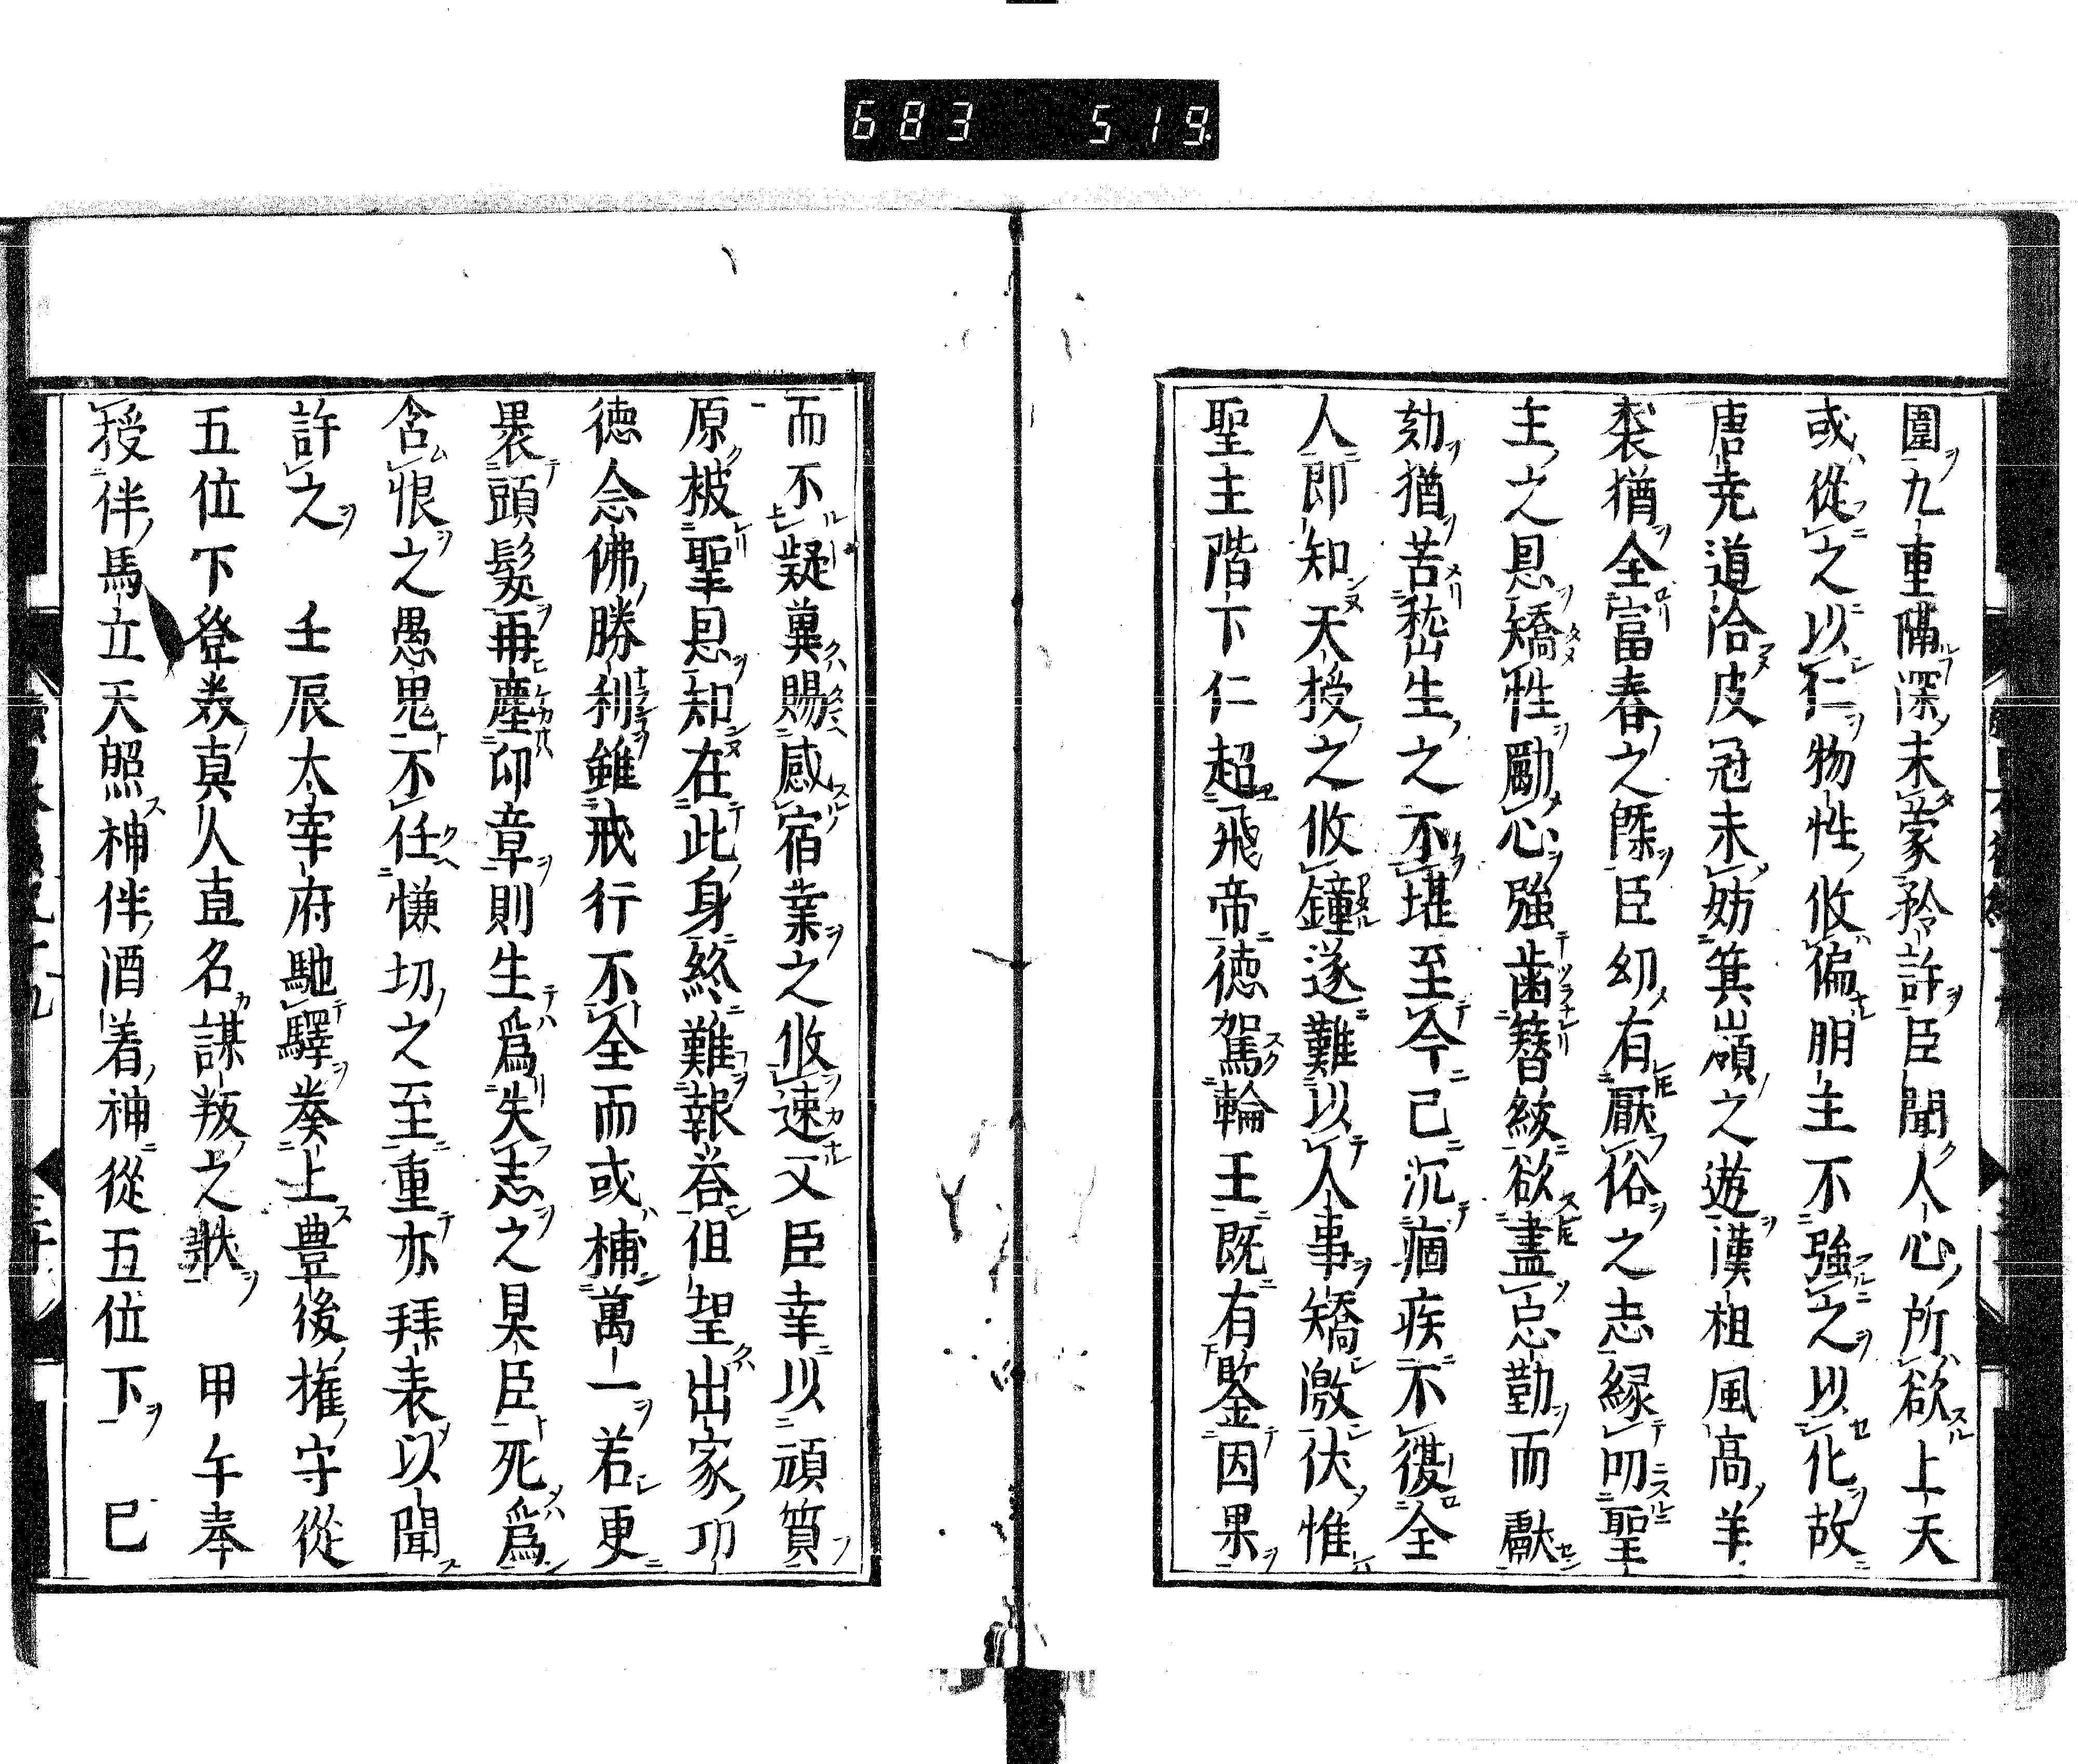 683 519
圍九重隔深未蒙矜許臣聞人心所欲上天
或從之以仁物性攸偏明主不強之以化故
唐尭道洽皮冠未妨箕潁之遊漢祖風高羊
裘猶全富春之操臣幼有厭俗之志縁叨聖
主之恩矯性勵心強歯簪紱欲盡忘勤而獻
劾猶苦嵆生之不堪至今已沉痼疾不復全
人即知天授之攸鐘遂難以人事矯激伏惟
聖主階下仁超飛帝徳駕輪王既有鑒因果
而不疑冀賜感宿業之攸速又臣幸以頑質
原被聖恩知在此身終難報荅但望出家功
徳念佛勝利雖戒行不全而或補萬一若更
褁頭髮再塵印章則生爲失志之具臣死爲
含恨之愚鬼不任慊切之至重亦拜表以聞
許之　壬辰太宰府馳驛奏上豊後權守從
五位下登羙真人直名謀叛之狀　甲午奉
授伴馬立天照神伴酒着神從五位下　巳